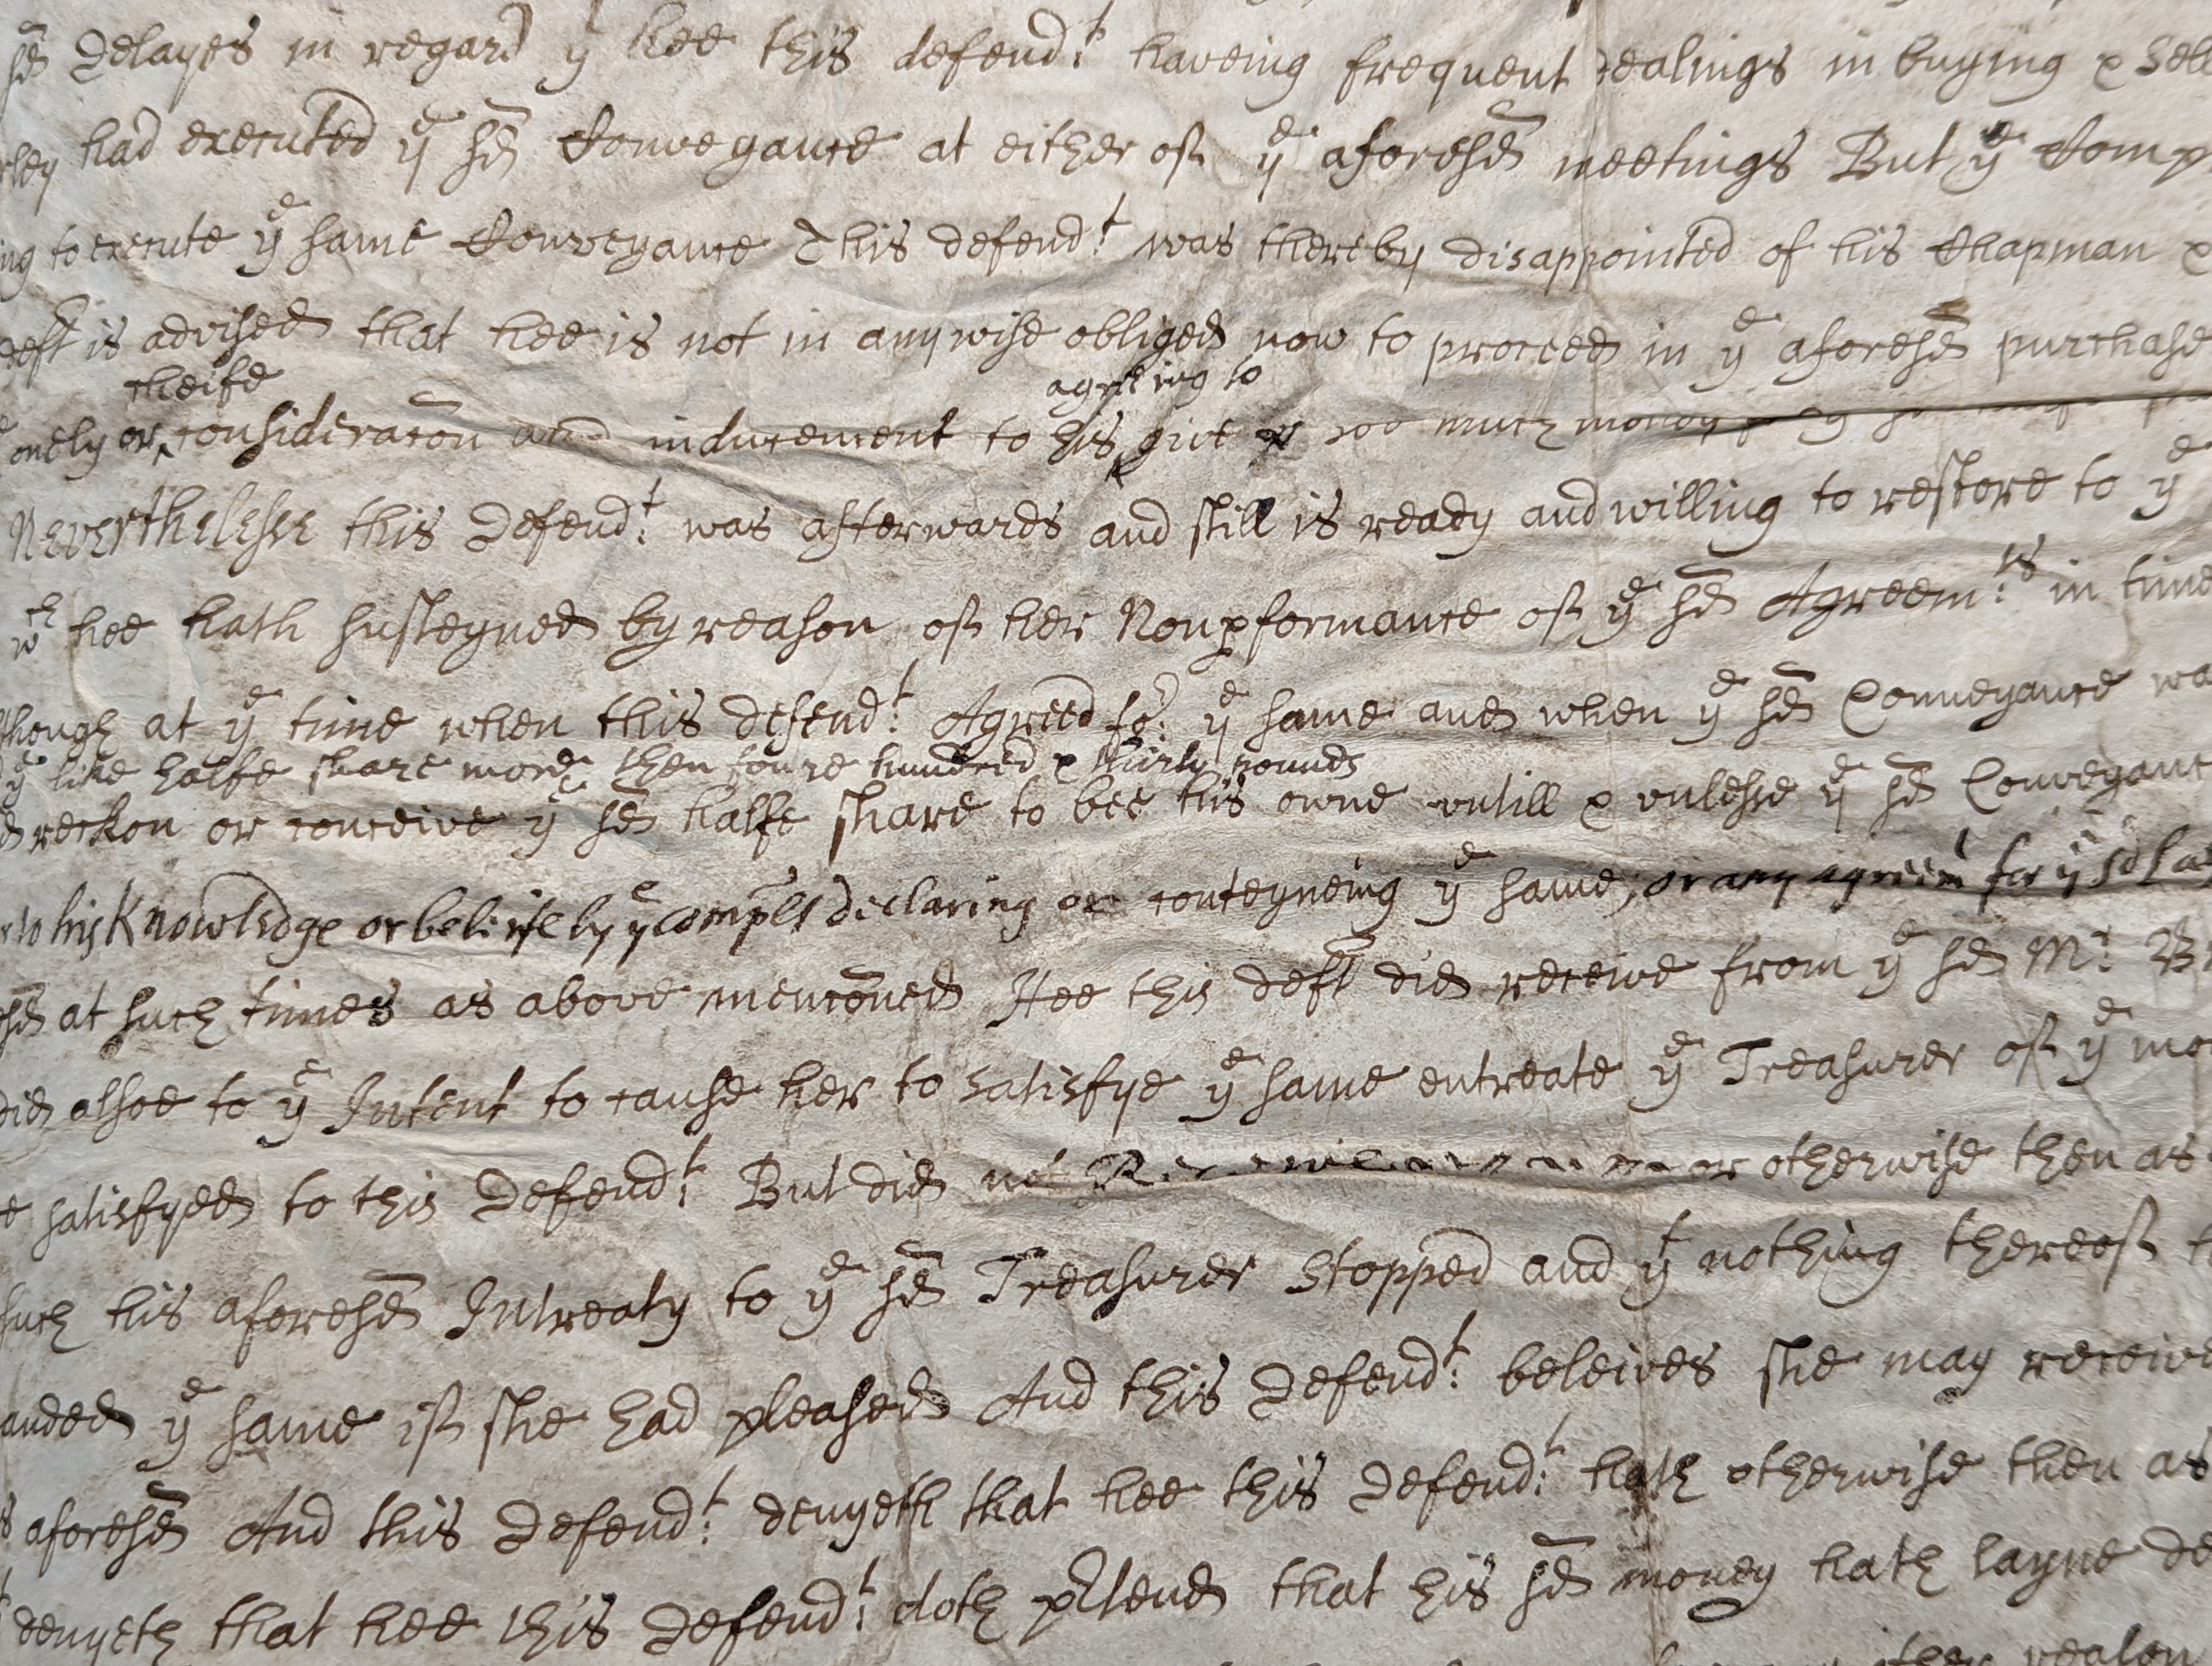 sd delayes in regard yt hee this defendt. haveing frequent dealings in buying & sell
had executed ye sd Conveyance at either of ye aforesd meetings But ye Comp
ng to execute ye same Conveyance This defendt. was thereby disappointed of his Chapman &
deft is advised that hee is not in anywise obliged now to proceed in ye aforesd purchase
cheife agreeing to
onely or consideracon and inducement to his give soe much money
Neverthelesse this Defendt. was afterwards and still is ready and willing to restore to ye
wch hee hath susteyned by reason of her Nonpformance of ye sd Agreemts. in time
though at ye time when this defendt. Agreed for ye same and when ye sd Conveyance wa
ye like halfe share more then foure hundred & thirty pounds
reckon or conceive ye sd halfe share to bee his owne untill & unlesse ye sd Conveyanc
to his Knowledge or beliefe by ye complt declaring or conteyneing ye same, or any agreemt for ye sd la
sd at such times as above menconed Hee this deft did receive from ye sd Mr. B
did alsoe to ye Intent to cause her to satisfye ye same entreate ye Treasurer of ye mo
e satisfyed to this Defendt. But did not or otherwise then as
such his aforesd Intreaty to ye sd Treasurer Stopped and yt nothing thereof
anded ye same if she had pleased And this Defendt. beleives she may receive
aforesd And this Defendt. denyeth that hee this Defendt. hath otherwise then as
denyeth that hee this Defendt. doth prtend that his sd money hath layne de
reason